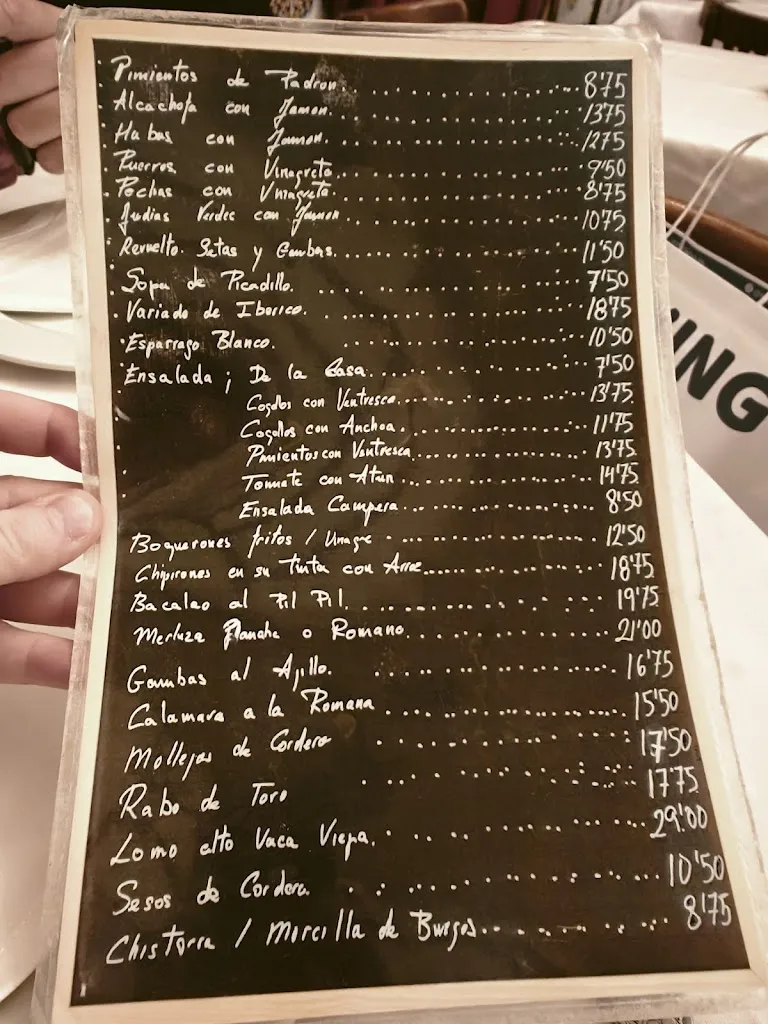 Pimientos de Padron. 8'75
Alcachofa con Jamon. 13'75
Habas con Jamon. 12'75
Puerros con Vinagreta. 9'50
Pochas con Vinagreta. 8'75
Judias Verdes con Jamon 10'75
Revuelto. Setas y Gambas. 11'50
Sopa de Picadillo. 7'50
Variado de Iberico. 18'75
Esparrago Blanco. 10'50
Ensalada ; De la Casa. 7'50
Cogollos con Ventresca. 13'75
Cogollos con Anchoa. 11'75
Pimientos con Ventresca. 13'75
Tomate con Atun 14'75
Ensalada Campera. 8'50
Boquerones fritos / Vinagre 12'50
Chipirones en su Tinta con Arroz. 18'75
Bacalao al Pil Pil. 19'75
Merluza Plancha o Romano. 21'00
Gambas al Ajillo. 16'75
Calamara a la Romana 15'50
Mollejas de Cordero 17'50
Rabo de Toro 17'75
Lomo alto Vaca Vieja. 29'00
Sesos de Cordero. 10'50
Chistorra / Morcilla de Burgos. 8'75
ING